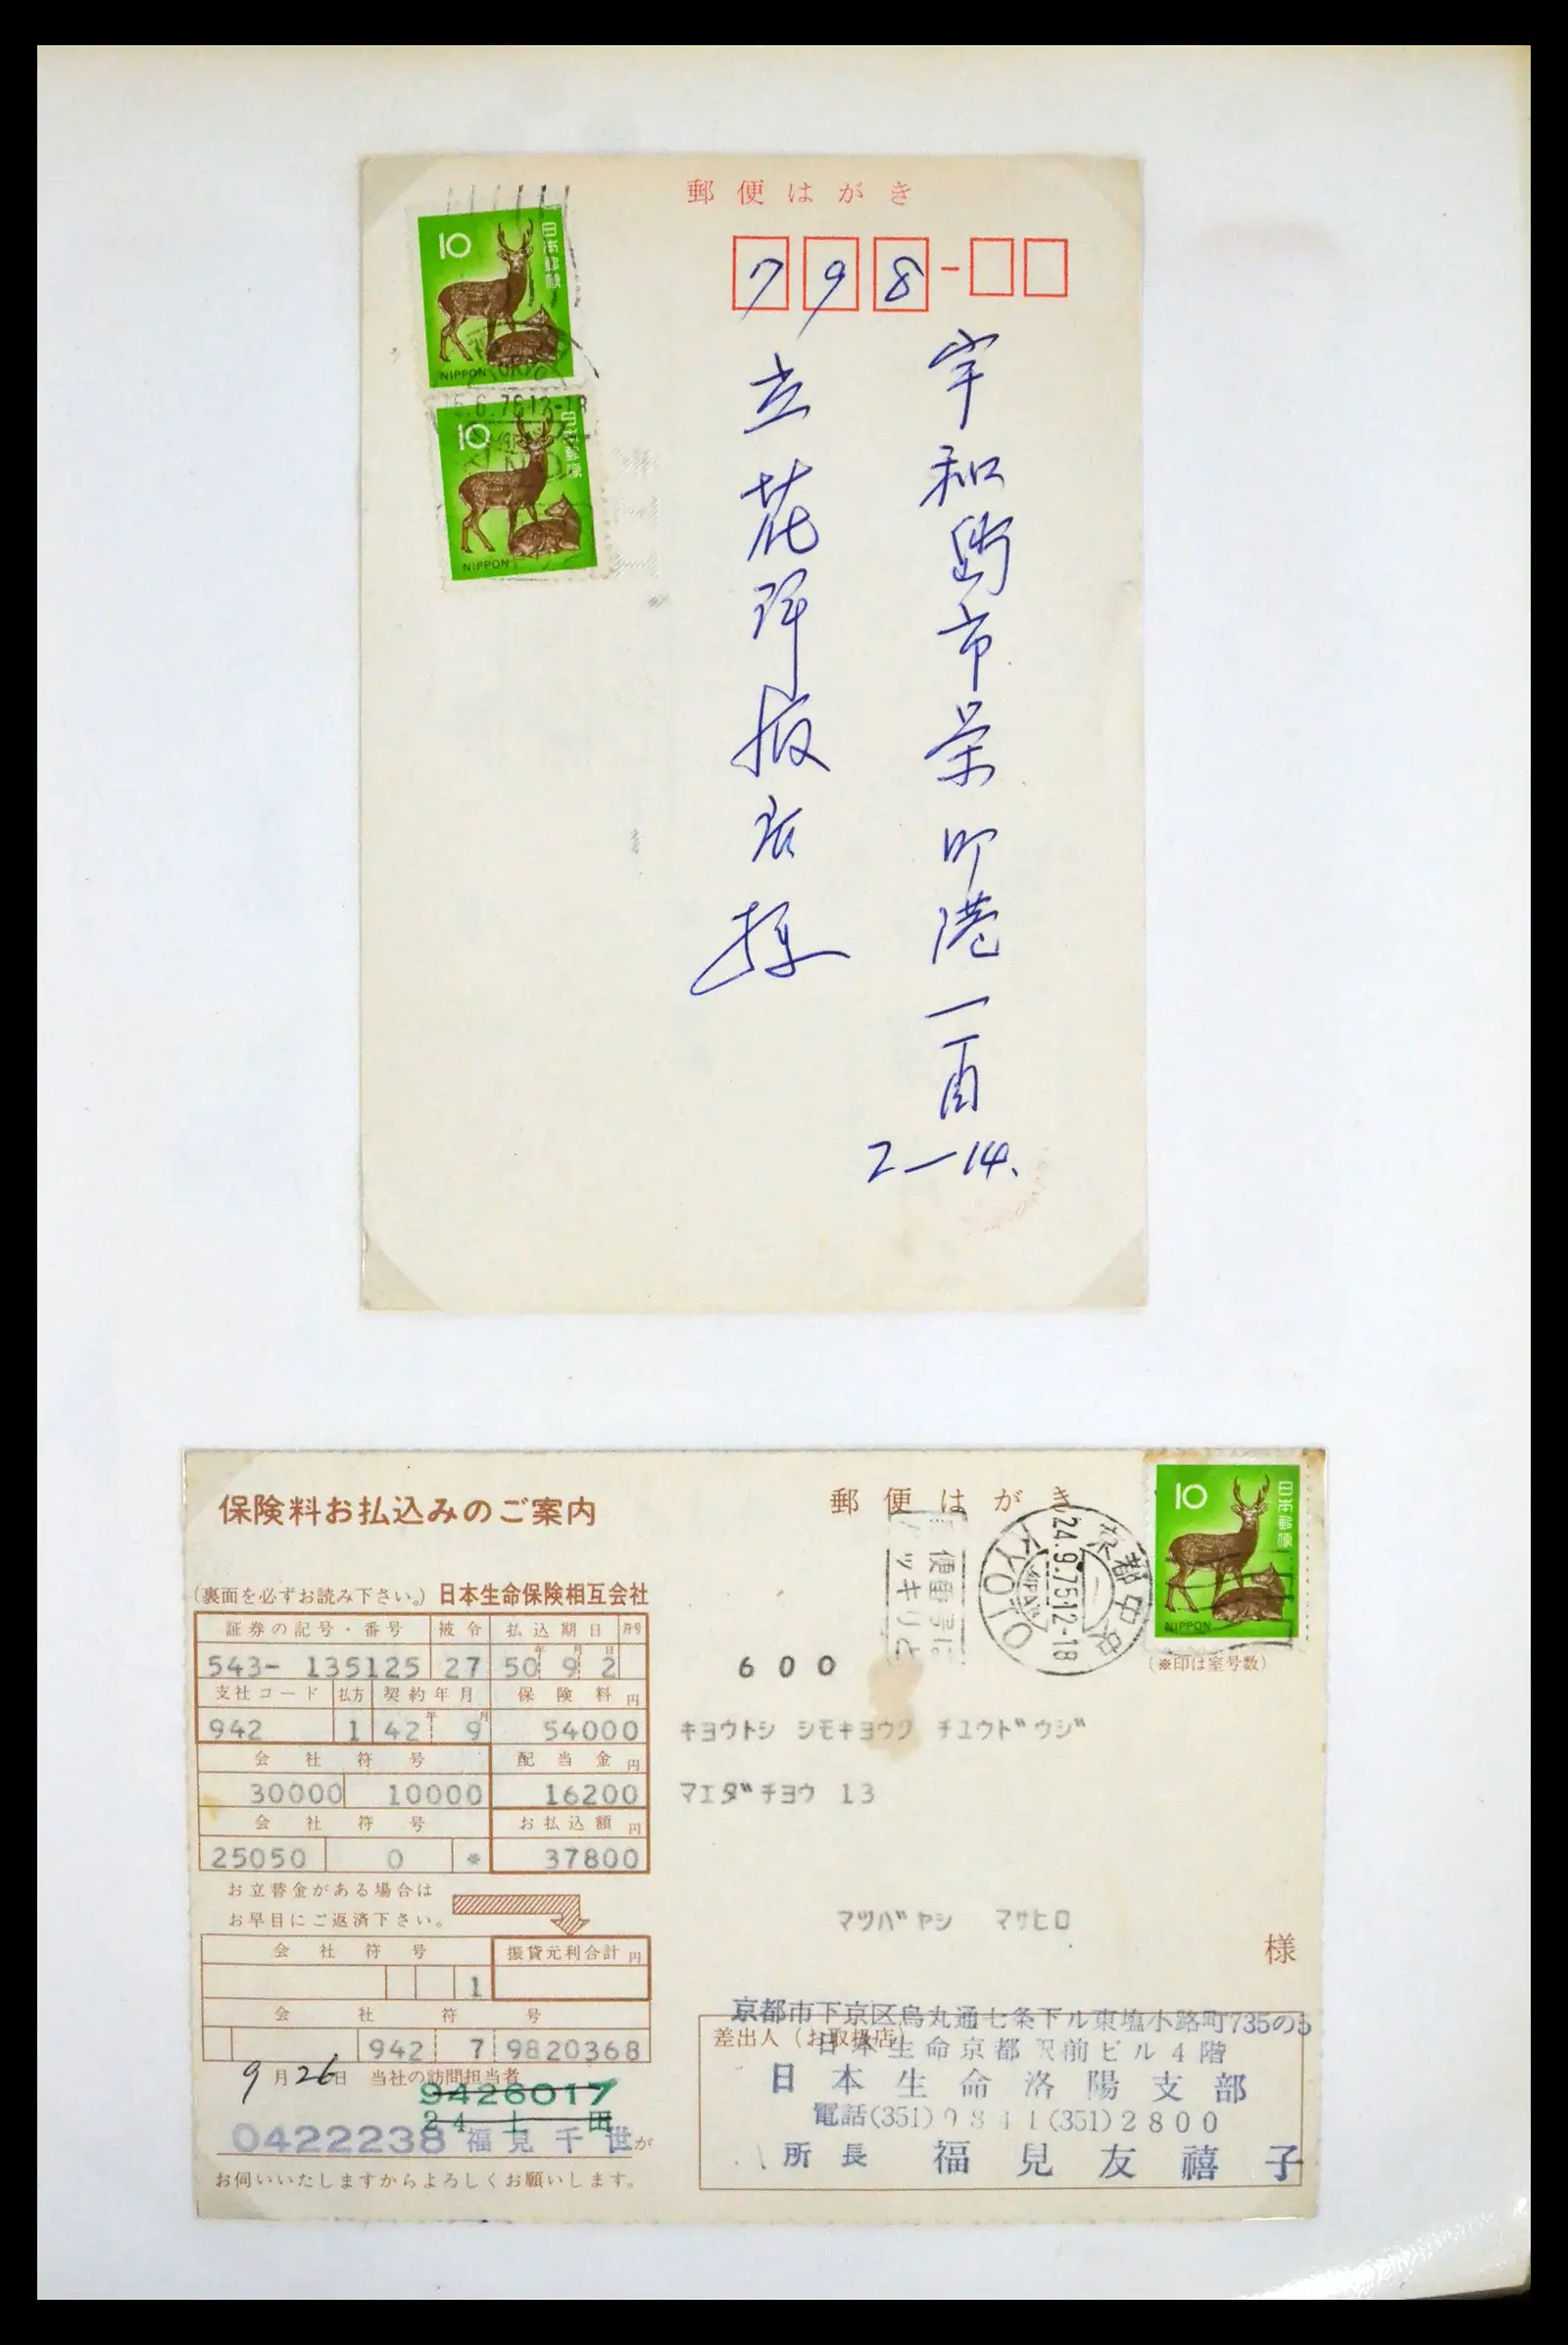 郵便はがき
10
日本郵便
NIPPON
10
日本郵便
NIPPON
798
宇和島市栄町港一丁目
2-14.
立花
様
保険料お払込みのご案内
(裏面を必ずお読み下さい。) 日本生命保険相互会社
証券の記号・番号 被令 払込期日
543- 135125 27 50年 9月 2日
支社コード 払方 契約年月 保険料 円
942 1 42年 9月 54000
会社符号 配当金 円
30000 10000 16200
会社符号 お払込額 円
25050 0 * 37800
お立替金がある場合は
お早目にご返済下さい。
会社符号 振貸元利合計 円
1
会社符号
942 7 9820368
9月26日 当社の訪問担当者
9426017
24 土田
0422238 福見千世が
お伺いいたしますからよろしくお願いします。
郵便はがき
京都中央
24.9.75 12-18
JAPAN
KYOTO
10
日本郵便
NIPPON
(※印は室号数)
600
キヨウトシ シモキヨウク チユウドウジ
マエダチヨウ 13
マツバヤシ マサヒロ
様
京都市下京区烏丸通七条下ル東塩小路町735の5
差出人(お取扱店)
日本生命京都駅前ビル4階
日本生命洛陽支部
電話(351)9841(351)2800
所長 福見友禧子